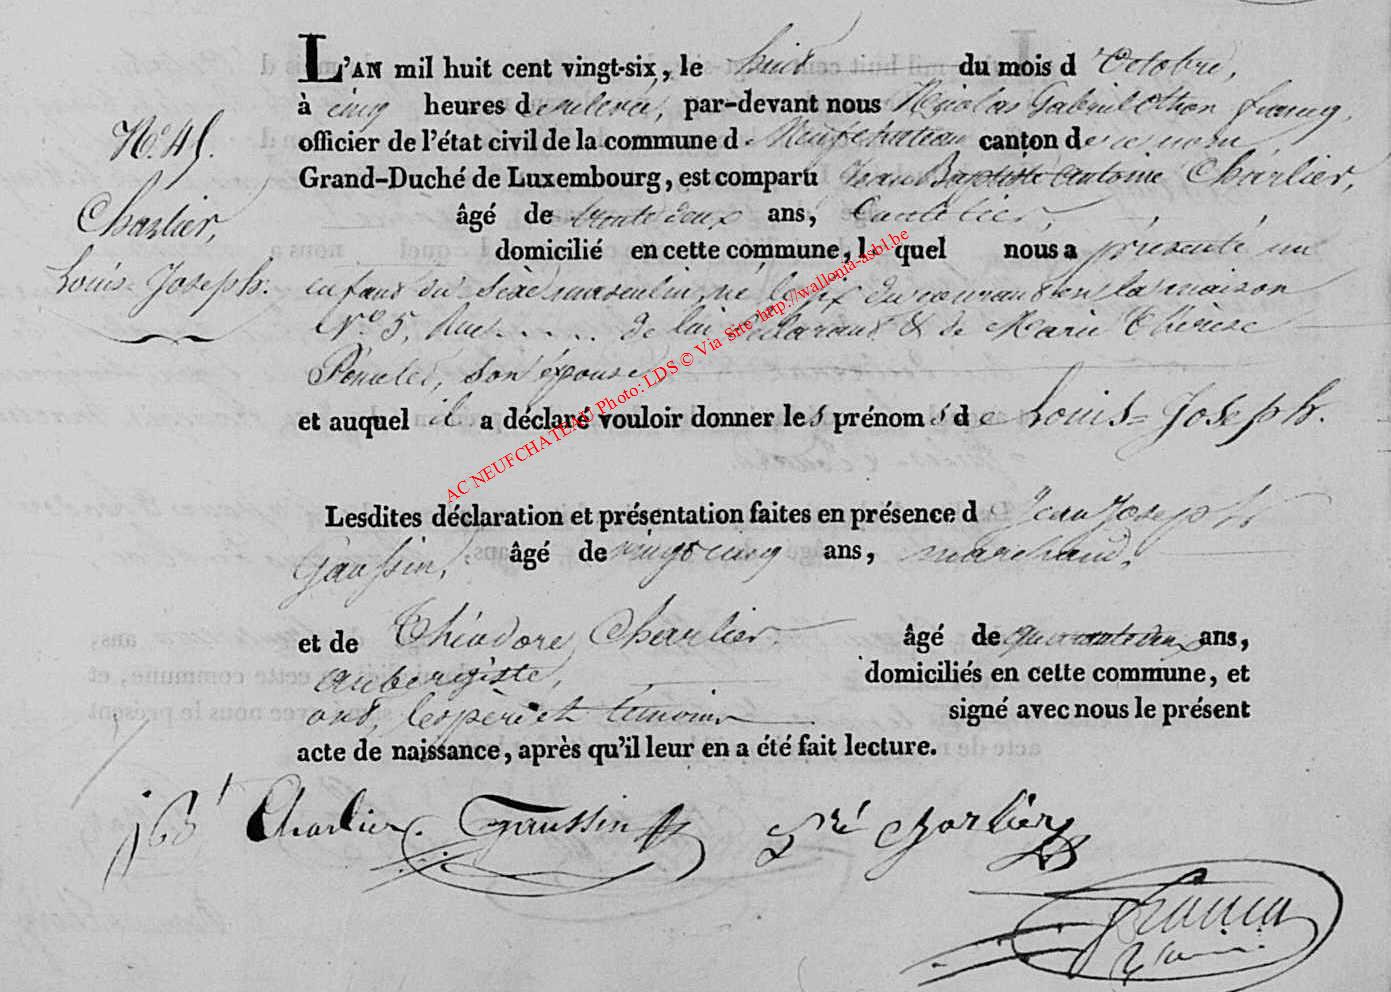 L'AN mil huit cent vingt-six, le huit du mois d'Octobre,
à cinq heures de relevée, par-devant nous Nicolas Gabriel
officier de l'état civil de la commune de Neufchateau canton de ce nom,
Grand-Duché de Luxembourg, est comparu Jean Baptiste Antoine Charlier,
âgé de trente deux ans,
domicilié en cette commune, lequel nous a présenté un
enfant du Sexe masculin, né le six du courant en la maison
N.o 5, Rue ..... de lui déclarant & de Marie Thérèse
son épouse,
et auquel il a déclaré vouloir donner les prénoms de Louis-Joseph.
Lesdites déclaration et présentation faites en présence de Jean Joseph
Gaussin, âgé de vingt cinq ans, marchand,
et de Théodore Charlier âgé de quarante deux ans,
aubergiste, domiciliés en cette commune, et
ont, les père et témoins signé avec nous le présent
acte de naissance, après qu'il leur en a été fait lecture.
N.o 45.
Charlier,
Louis Joseph.
Charlier. Gaussin Charlier
AC NEUFCHATEAU Photo: LDS © Via Site http://wallonia-asbl.be